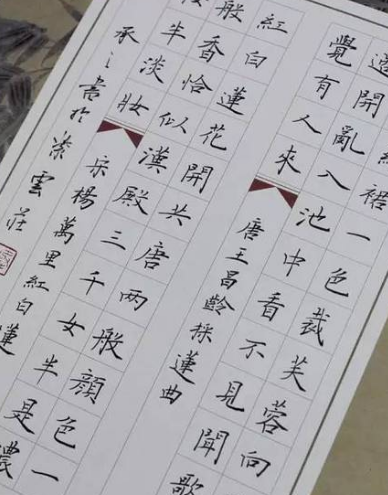 裙一色裁芙蓉向
開亂入池中看不見聞歌
覺有人來唐王昌齡採蓮曲
紅白蓮花開共唐兩般顏色一
般香恰似漢殿三千女半是濃
半淡妝宋楊萬里紅白蓮
承之書於紫雲莊